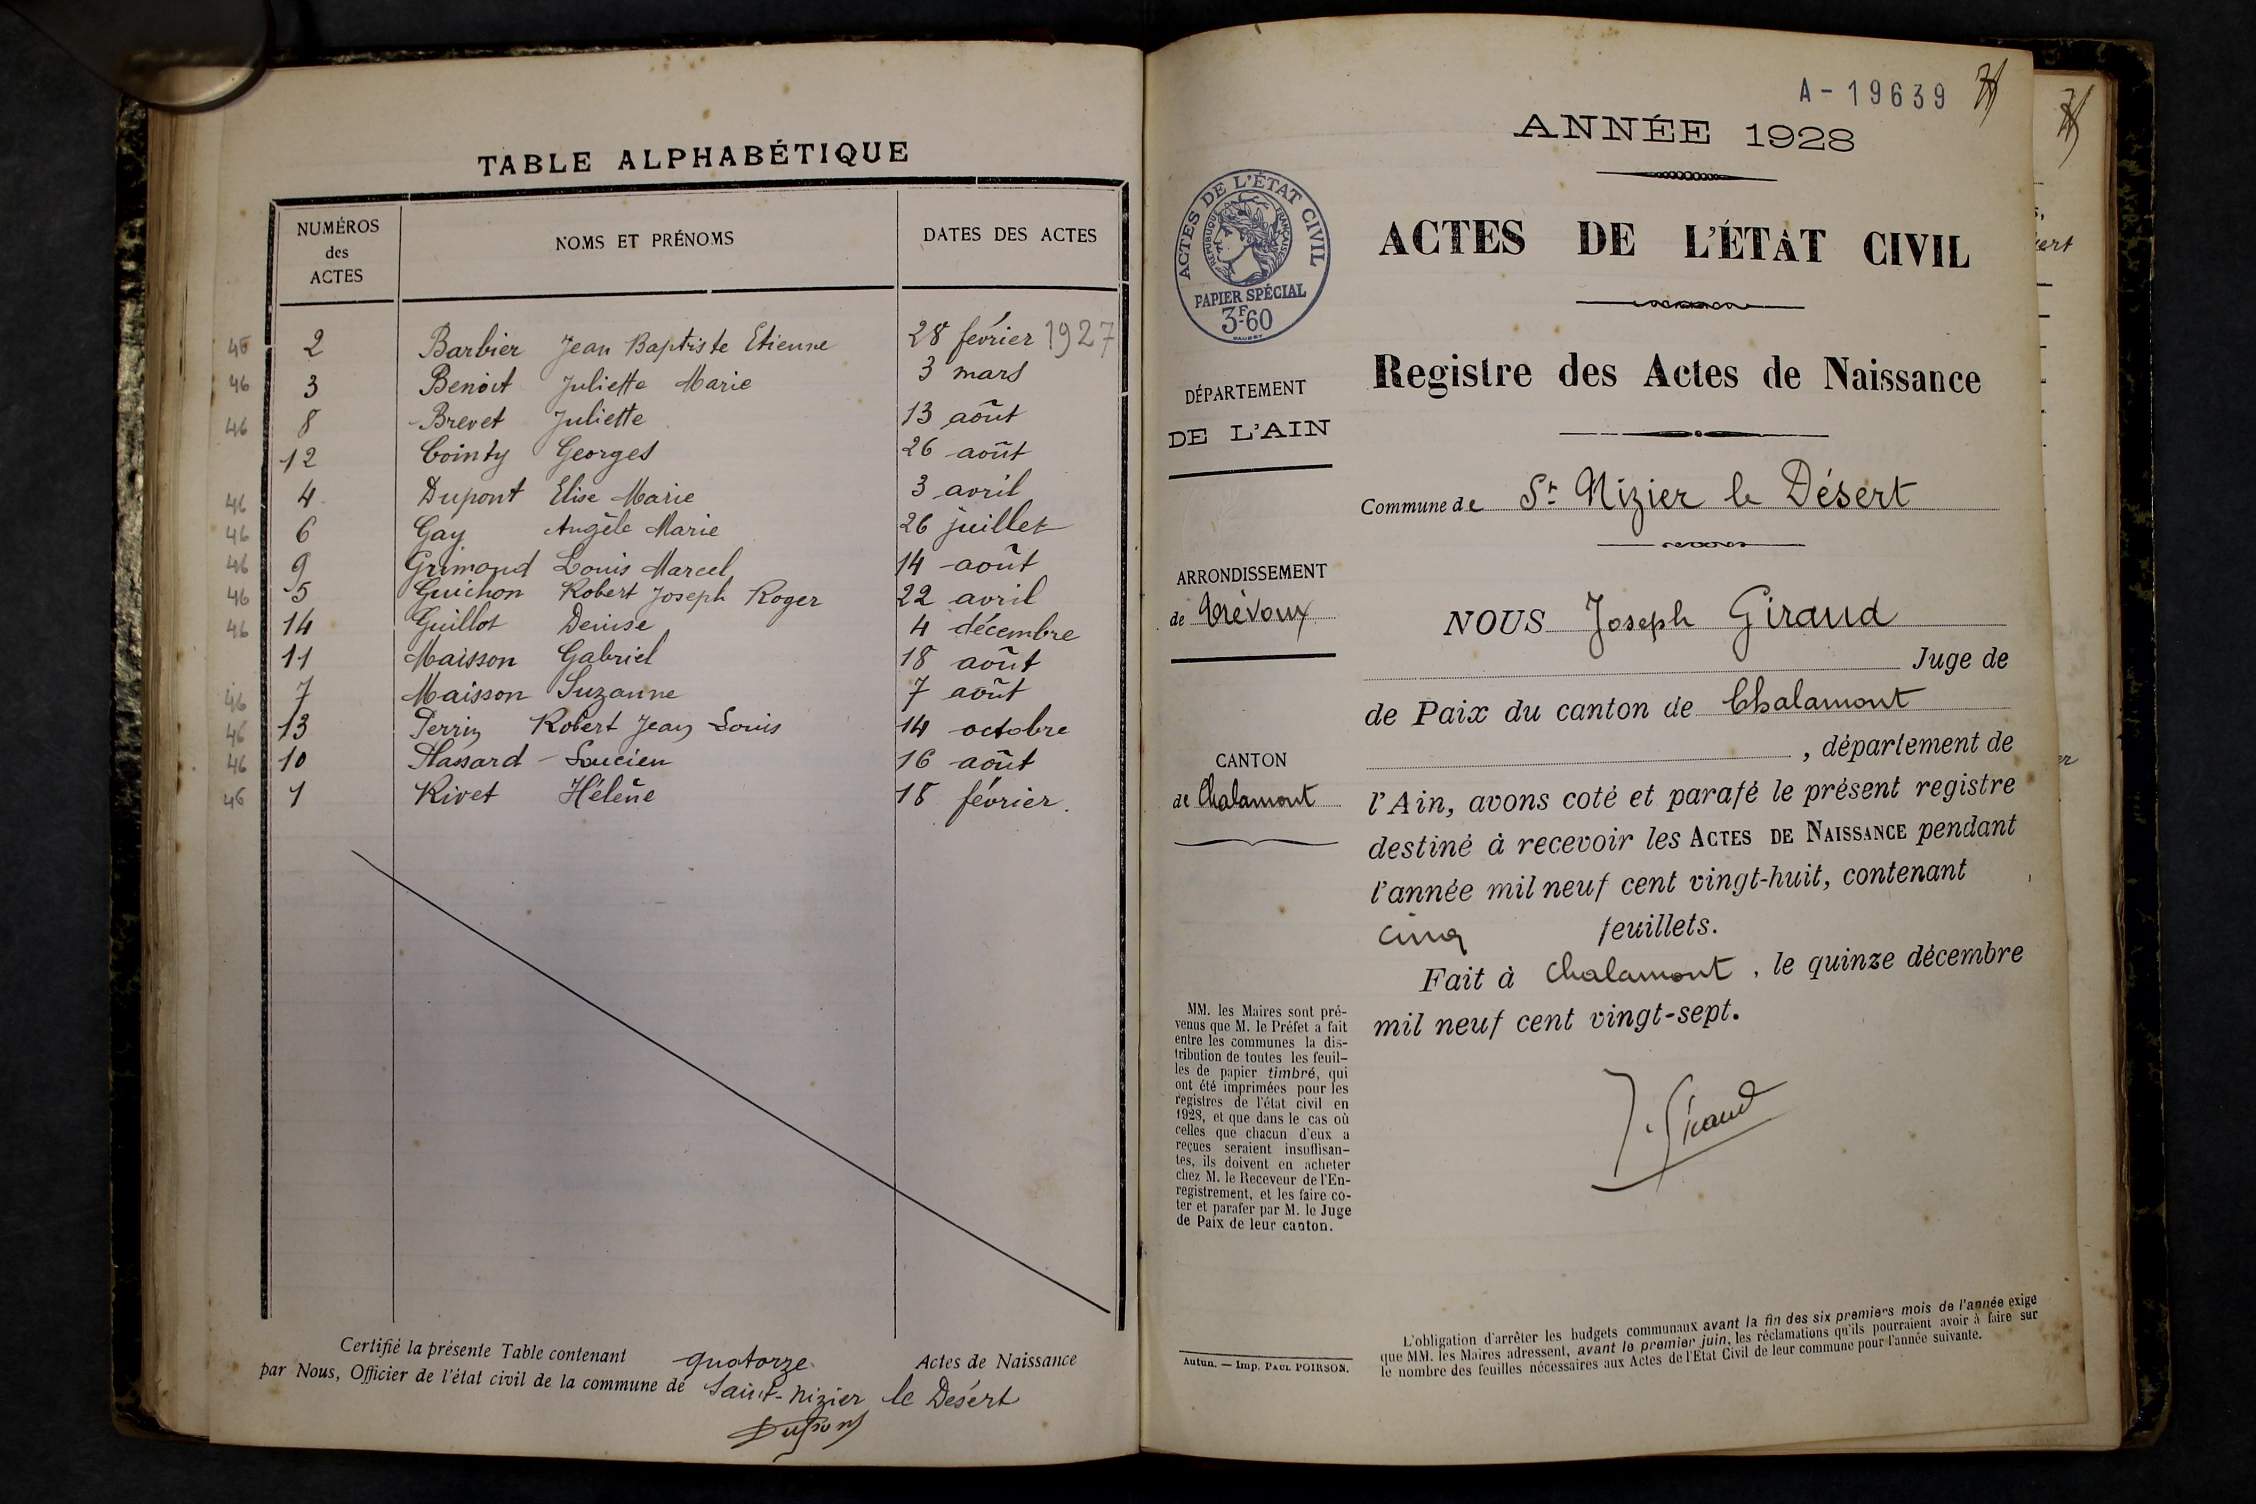 TABLE ALPHABÉTIQUE
NUMÉROS des ACTES
NOMS ET PRÉNOMS
DATES DES ACTES
46 2 Barbier Jean Baptiste Etienne 28 février 1927
46 3 Benoit Juliette Marie 3 mars
46 8 Brevet Juliette 13 août
12 Cointy Georges 26 août
46 4 Dupont Elise Marie 3 avril
46 6 Gay Angèle Marie 26 juillet
46 9 Grimond Louis Marcel 14 août
46 5 Guichon Robert Joseph Roger 22 avril
46 14 Guillot Denise 4 décembre
11 Maisson Gabriel 18 août
46 7 Maisson Suzanne 7 août
46 13 Perrin Robert Jean Louis 14 octobre
46 10 Plassard Lucien 16 août
46 1 Rivet Hélène 18 février.
Certifié la présente Table contenant quatorze Actes de Naissance
par Nous, Officier de l'état civil de la commune de Saint-Nizier le Désert
Dupont
A-19639
ANNÉE 1928
ACTES DE L'ÉTAT CIVIL
RÉPUBLIQUE FRANÇAISE
PAPIER SPÉCIAL
3F.60
ACTES DE L'ÉTAT CIVIL
Registre des Actes de Naissance
DÉPARTEMENT
DE L'AIN
Commune de St Nizier le Désert
ARRONDISSEMENT
de Trévoux
CANTON
de Chalamont
NOUS Joseph Giraud
Juge de
de Paix du canton de Chalamont
, département de
l'Ain, avons coté et parafé le présent registre
destiné à recevoir les ACTES DE NAISSANCE pendant
l'année mil neuf cent vingt-huit, contenant
cinq feuillets.
Fait à Chalamont, le quinze décembre
mil neuf cent vingt-sept.
J. Giraud
MM. les Maires sont pré-
venus que M. le Préfet a fait
entre les communes la dis-
tribution de toutes les feuil-
les de papier timbré, qui
ont été imprimées pour les
registres de l'état civil en
1928, et que dans le cas où
celles que chacun d'eux a
reçues seraient insuffisan-
tes, ils doivent en acheter
chez M. le Receveur de l'En-
registrement, et les faire co-
ter et parafer par M. le Juge
de Paix de leur canton.
Autun. — Imp. PAUL POIRSON.
L'obligation d'arrêter les budgets communaux avant la fin des six premiers mois de l'année exige
que MM. les Maires adressent, avant le premier juin, les réclamations qu'ils pourraient avoir à faire sur
le nombre des feuilles nécessaires aux Actes de l'Etat Civil de leur commune pour l'année suivante.